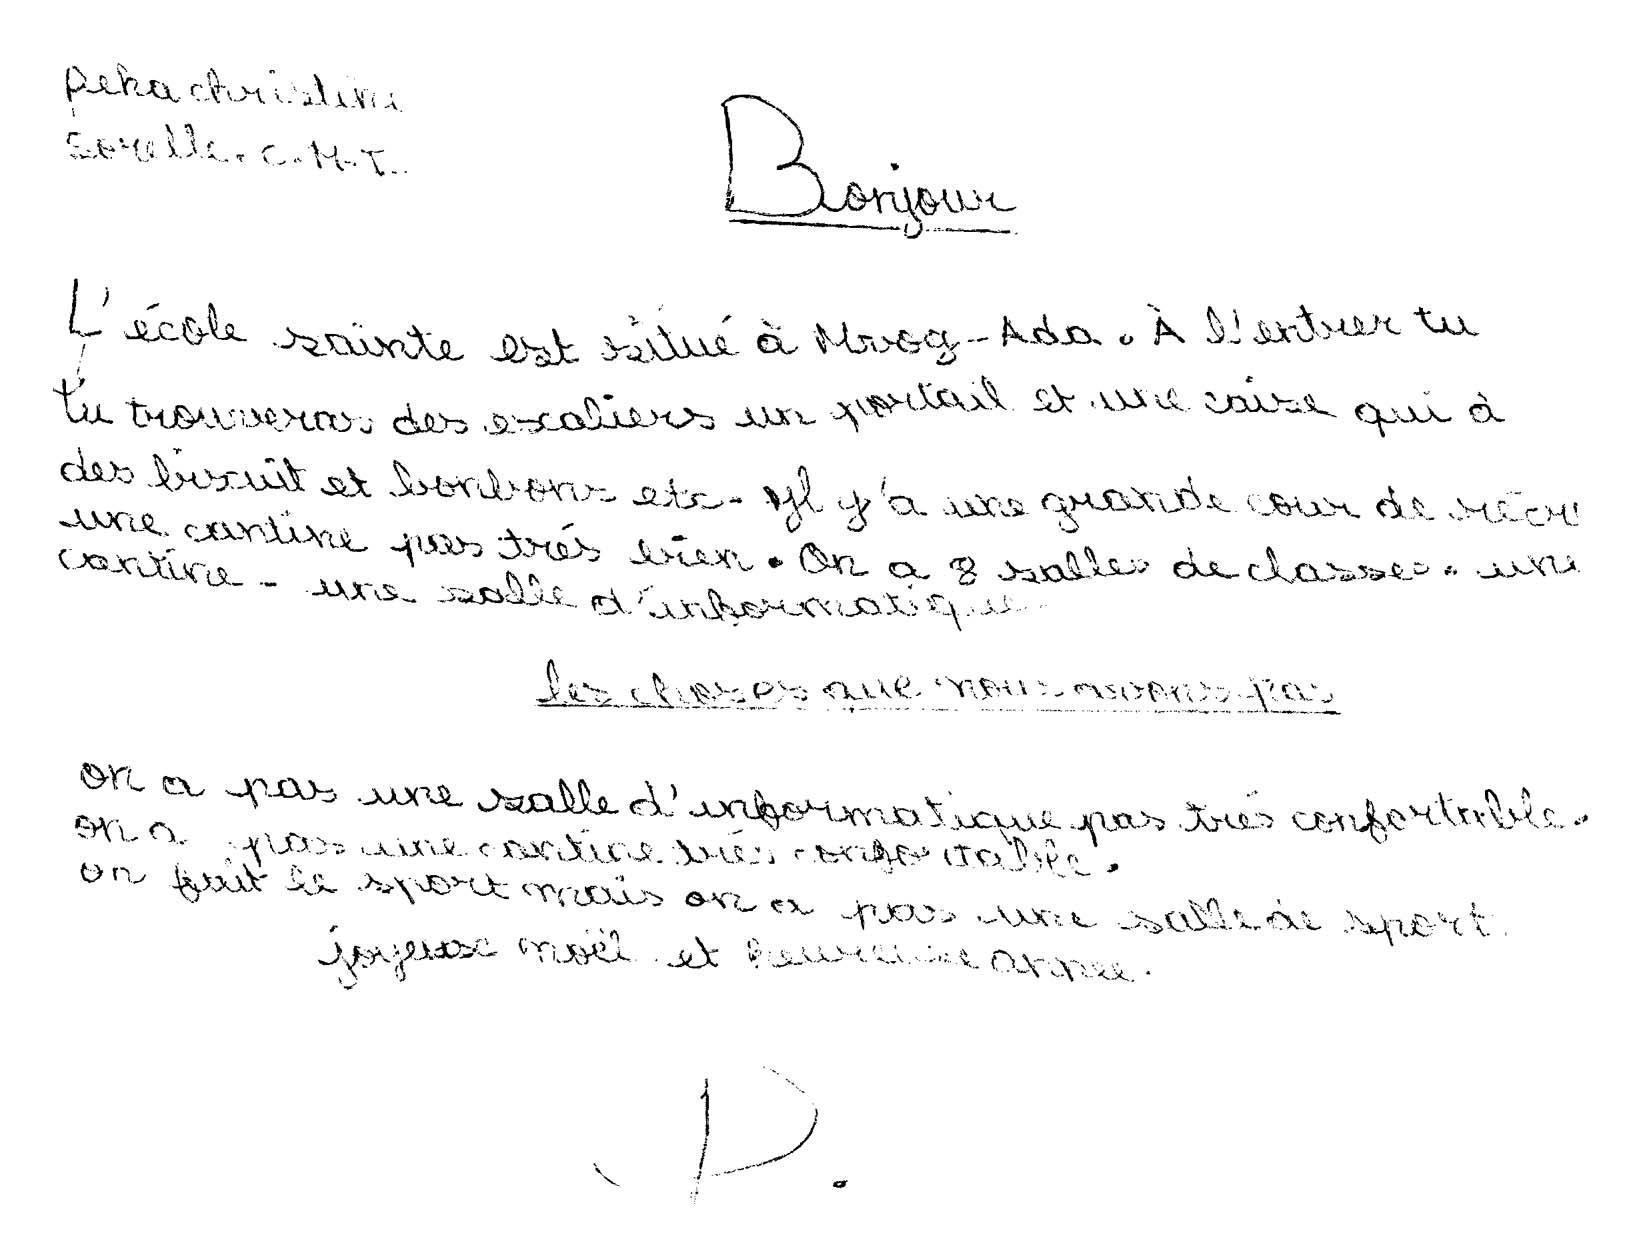 peka christine
sorelle. C.M.I.
Bonjour
L'école sainte est situé à Mvog-Ada. À l'entrer tu
tu trouveras des escaliers un portail et une caise qui à
des biscuit et bonbons etc. Yl y'a une grande cour de récr
une cantine pas trés bien. On a 8 salles de classes. une
cantine - une salle d'informatique
les choses que nous avons pas
on a pas une salle d'informatique pas trés confortable.
on a pas une cantine trés confortable.
on fait le sport mais on a pas une salle de sport.
joyeuse noël et heureuse annee.
P.